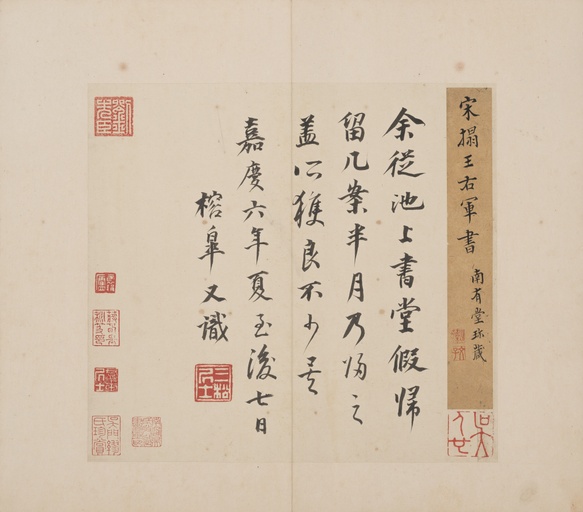 宋搨王右軍書
南有堂珍藏
余從池上書堂假歸
留几案半月乃㱕之
蓋所獲良不少矣
嘉慶六年夏至後七日
榕皋又識
三松居士